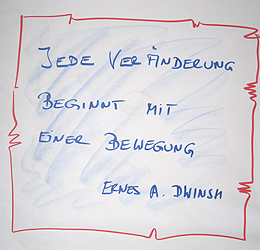 JEDE VERÄNDERUNG
BEGINNT MIT
EINER BEWEGUNG
ERNES A. DWINSH